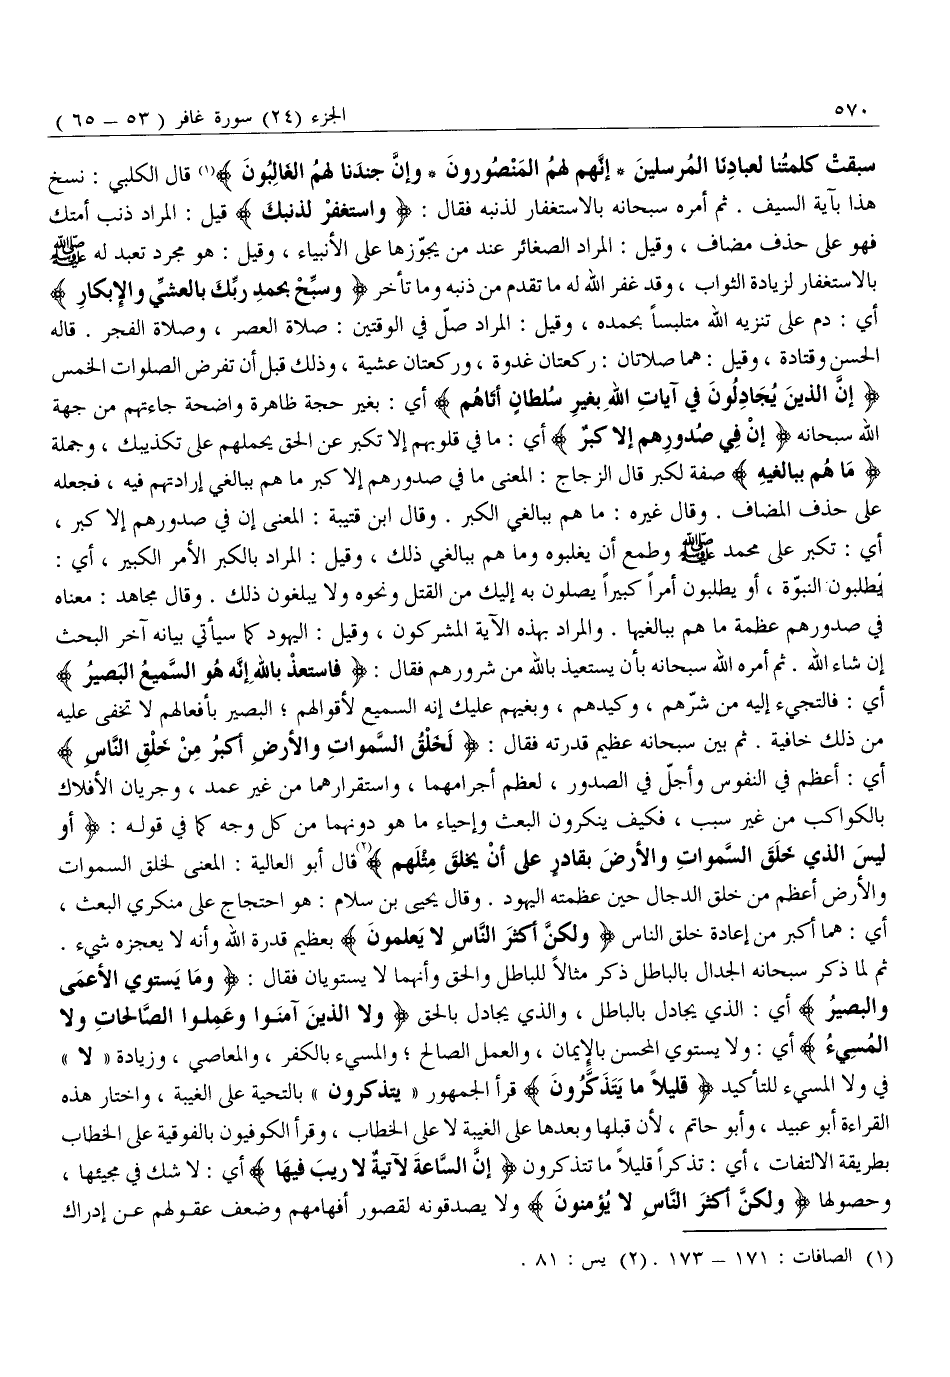 ٥٧٠ الجزء (٢٤) سورة غافر ( ٥٣ – ٦٥ )
سبقتْ كلمتُنا لعبادِنَا المُرسلينَ * إنَّهم لهمُ المَنْصُورونَ * وإنَّ جندَنا لهمُ الغَالِبُونَ ﴾(١) قال الكلبي : نسخ
هذا بآية السيف . ثم أمره سبحانه بالاستغفار لذنبه فقال : ﴿ واستغفرْ لذنبكَ ﴾ قيل : المراد ذنب أمتك
فهو على حذف مضاف ، وقيل : المراد الصغائر عند من يجوّزها على الأنبياء ، وقيل : هو مجرد تعبد له ﷺ
بالاستغفار لزيادة الثواب ، وقد غفر الله له ما تقدم من ذنبه وما تأخر ﴿ وسبِّحْ بحمدِ ربِّكَ بالعشيِّ والإبكارِ ﴾
أي : دم على تنزيه الله متلبساً بحمده ، وقيل : المراد صلّ في الوقتين : صلاة العصر ، وصلاة الفجر . قاله
الحسن وقتادة ، وقيل : هما صلاتان : ركعتان غدوة ، وركعتان عشية ، وذلك قبل أن تفرض الصلوات الخمس
﴿ إنَّ الذينَ يُجَادِلُونَ في آياتِ اللهِ بغيرِ سُلطانٍ أتَاهُم ﴾ أي : بغير حجة ظاهرة واضحة جاءتهم من جهة
الله سبحانه ﴿ إنْ فِي صُدورِهم إلا كبرٌ ﴾ أي : ما في قلوبهم إلا تكبر عن الحق يحملهم على تكذيبك ، وجملة
﴿ مَا هُم ببالغيهِ ﴾ صفة لكبر قال الزجاج : المعنى ما في صدورهم إلا كبر ما هم ببالغي إرادتهم فيه ، فجعله
على حذف المضاف . وقال غيره : ما هم ببالغي الكبر . وقال ابن قتيبة : المعنى إن في صدورهم إلا كبر ،
أي : تكبر على محمد ﷺ وطمع أن يغلبوه وما هم ببالغي ذلك ، وقيل : المراد بالكبر الأمر الكبير ، أي :
يطلبون النبوّة ، أو يطلبون أمراً كبيراً يصلون به إليك من القتل ونحوه ولا يبلغون ذلك . وقال مجاهد : معناه
في صدورهم عظمة ما هم ببالغيها . والمراد بهذه الآية المشركون ، وقيل : اليهود كما سيأتي بيانه آخر البحث
إن شاء الله . ثم أمره الله سبحانه بأن يستعيذ بالله من شرورهم فقال : ﴿ فاستعذْ باللهِ إنَّه هُو السَّميعُ البَصيرُ ﴾
أي : فالتجيء إليه من شرّهم ، وكيدهم ، وبغيهم عليك إنه السميع لأقوالهم ؛ البصير بأفعالهم لا تخفى عليه
من ذلك خافية . ثم بين سبحانه عظيم قدرته فقال : ﴿ لَخلْقُ السَّمواتِ والأرضِ أكبرُ مِنْ خلْقِ النَّاسِ ﴾
أي : أعظم في النفوس وأجلّ في الصدور ، لعظم أجرامهما ، واستقرارهما من غير عمد ، وجريان الأفلاك
بالكواكب من غير سبب ، فكيف ينكرون البعث وإحياء ما هو دونهما من كل وجه كما في قوله : ﴿ أو
ليسَ الذي خَلَقَ السَّمواتِ والأرضَ بقادرٍ على أنْ يخلقَ مِثْلَهم ﴾(٢) قال أبو العالية : المعنى لخلق السموات
والأرض أعظم من خلق الدجال حين عظمته اليهود . وقال يحيى بن سلام : هو احتجاج على منكري البعث ،
أي : هما أكبر من إعادة خلق الناس ﴿ ولكنَّ أكثرَ النَّاسِ لا يَعلمونَ ﴾ بعظيم قدرة الله وأنه لا يعجزه شيء .
ثم لما ذكر سبحانه الجدال بالباطل ذكر مثالاً للباطل والحق وأنهما لا يستويان فقال : ﴿ ومَا يَستوي الأعمَى
والبصيرُ ﴾ أي : الذي يجادل بالباطل ، والذي يجادل بالحق ﴿ ولا الذينَ آمنَـوا وعَمِلـوا الصَّالحاتِ ولا
المُسيءُ ﴾ أي : ولا يستوي المحسن بالإيمان ، والعمل الصالح ؛ والمسيء بالكفر ، والمعاصي ، وزيادة « لا »
في ولا المسيء للتأكيد ﴿ قليلاً ما يَتَذكَّرُونَ ﴾ قرأ الجمهور « يتذكرون » بالتحية على الغيبة ، واختار هذه
القراءة أبو عبيد ، وأبو حاتم ، لأن قبلها وبعدها على الغيبة لا على الخطاب ، وقرأ الكوفيون بالفوقية على الخطاب
بطريقة الالتفات ، أي : تذكراً قليلاً ما تتذكرون ﴿ إنَّ السَّاعةَ لآتيةٌ لا ريبَ فيهَا ﴾ أي : لا شك في مجيئها ،
وحصولها ﴿ ولكنَّ أكثرَ النَّاسِ لا يُؤمنونَ ﴾ ولا يصدقونه لقصور أفهامهم وضعف عقولهم عـن إدراك
(١) الصافات : ١٧١ – ١٧٣ . (٢) يس : ٨١ .